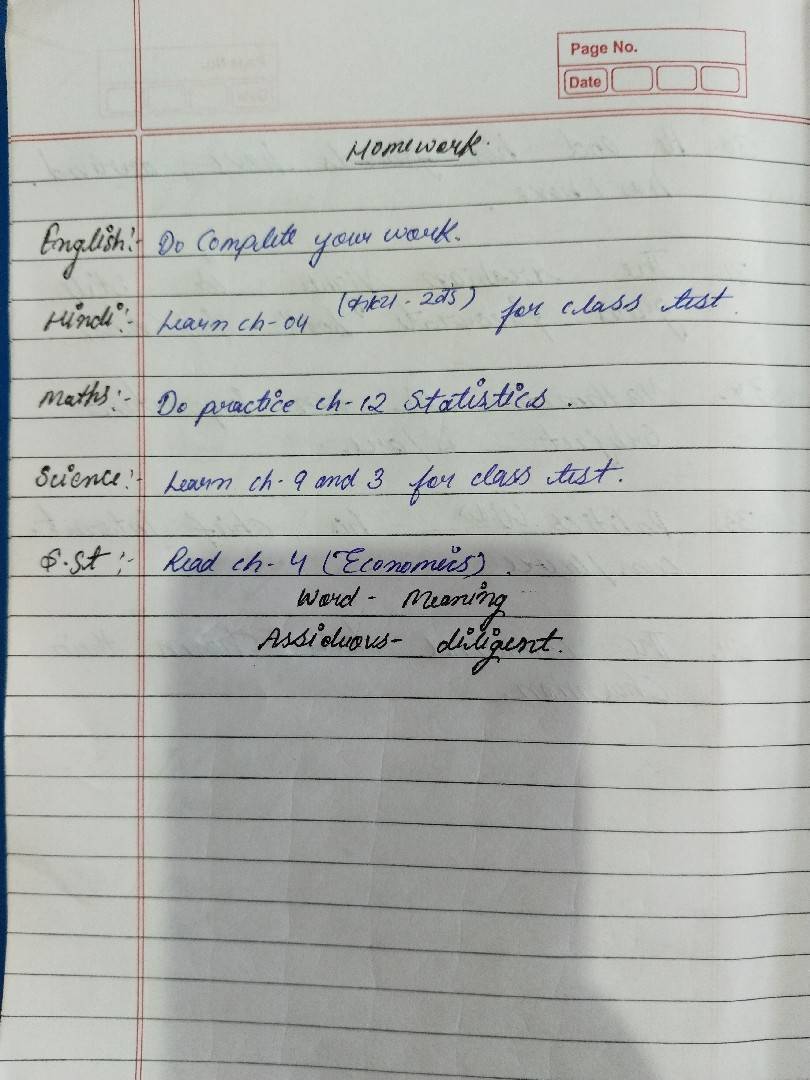 Page No.
Date
Homework.
English:- Do Complete your work.
Hindi:- Learn ch-04 for class test.
Maths:- Do practice ch-12 Statistics.
Science:- Learn ch-9 and 3 for class test.
S.St:- Read ch-4 (Economics).
Word - Meaning
Assiduous - diligent.